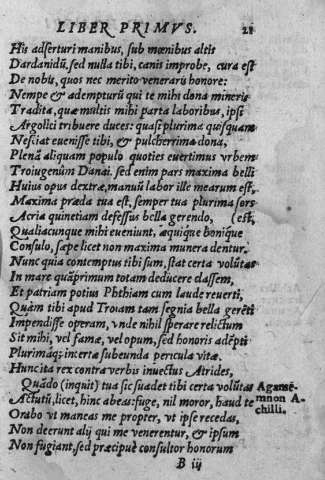 LIBER PRIMVS. 21
His adserturi manibus, sub mœnibus altis
Dardanidũ, sed nulla tibi, canis improbe, cura est
De nobis, quos nec merito veneraris honore:
Nempe & adempturũ qui te mihi dona mineris
Tradita, quæ multis mihi parta laboribus, ipsi
Argolici tribuere duces: quasi plurima quisquam
Nesciat euenisse tibi, & pulcherrima dona,
Plenã aliquam populo quoties euertimus vrbem
Troiugenûm Danai. sed enim pars maxima belli
Huius opus dextræ, manuũ labor ille mearum est,
Maxima præda tua est, semper tua plurima sors
Acria quinetiam defessus bella gerendo, (est,
Qualiacunque mihi eueniunt, æquique bonique
Consulo, sæpe licet non maxima munera dentur.
Nunc quia contemptus tibi sum, stat certa volũtas
In mare quãprimum totam deducere classem,
Et patriam potius Phthiam cum laude reuerti,
Quàm tibi apud Troiam tam segnia bella gerẽti
Impendisse operam, vnde nihil sperare relictum
Sit mihi, vel famæ, vel opum, sed honoris adẽpti
Plurimáq; incertæ subeunda pericula vitæ.
Hunc ita rex contra verbis inuectus Atrides,
Quãdo (inquit) tua sic suadet tibi certa volũtas
Actutũ, licet, hinc abeas: fuge, nil moror, haud te
Orabo vt maneas me propter, vt ipse recedas,
Non deerunt alij qui me venerentur, & ipsum
Non fugiant, sed præcipuè consultor honorum
Agame-
mnon A-
chilli.
B iij